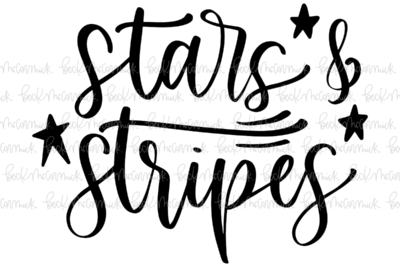 stars &
stripes